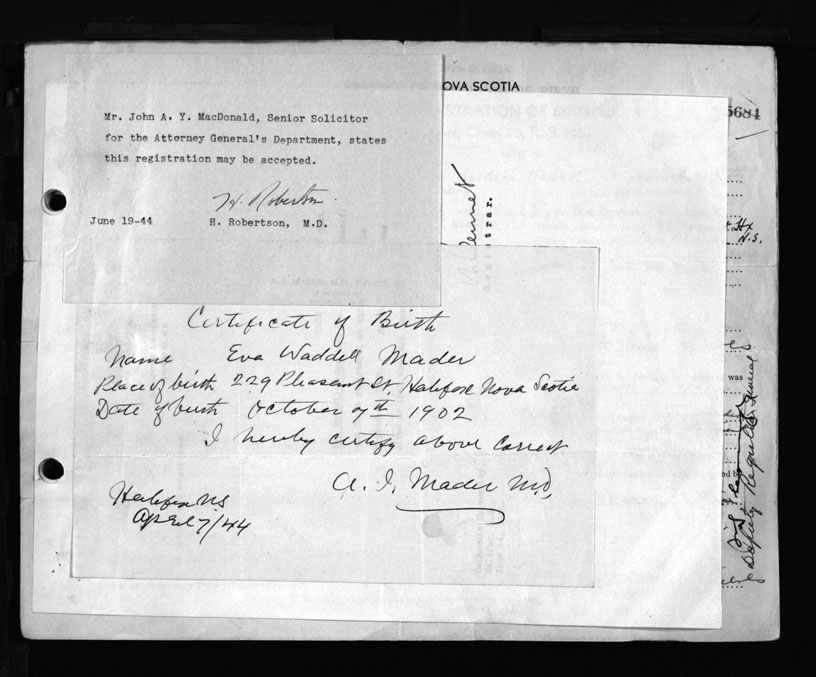 OVA SCOTIA
5684
Mr. John A. Y. MacDonald, Senior Solicitor
for the Attorney General's Department, states
this registration may be accepted.
H. Robertson
June 19-44 H. Robertson, M.D.
trar.
Hx
N.S.
Certificate of Birth
Name Eva Waddell Mader
Place of birth 229 Pleasant St, Halifax Nova Scotia
Date of birth October 7th 1902
I hereby certify above correct
A. I. Mader M.D,
Halifax NS
April 7/44
was
Deputy Registrar General